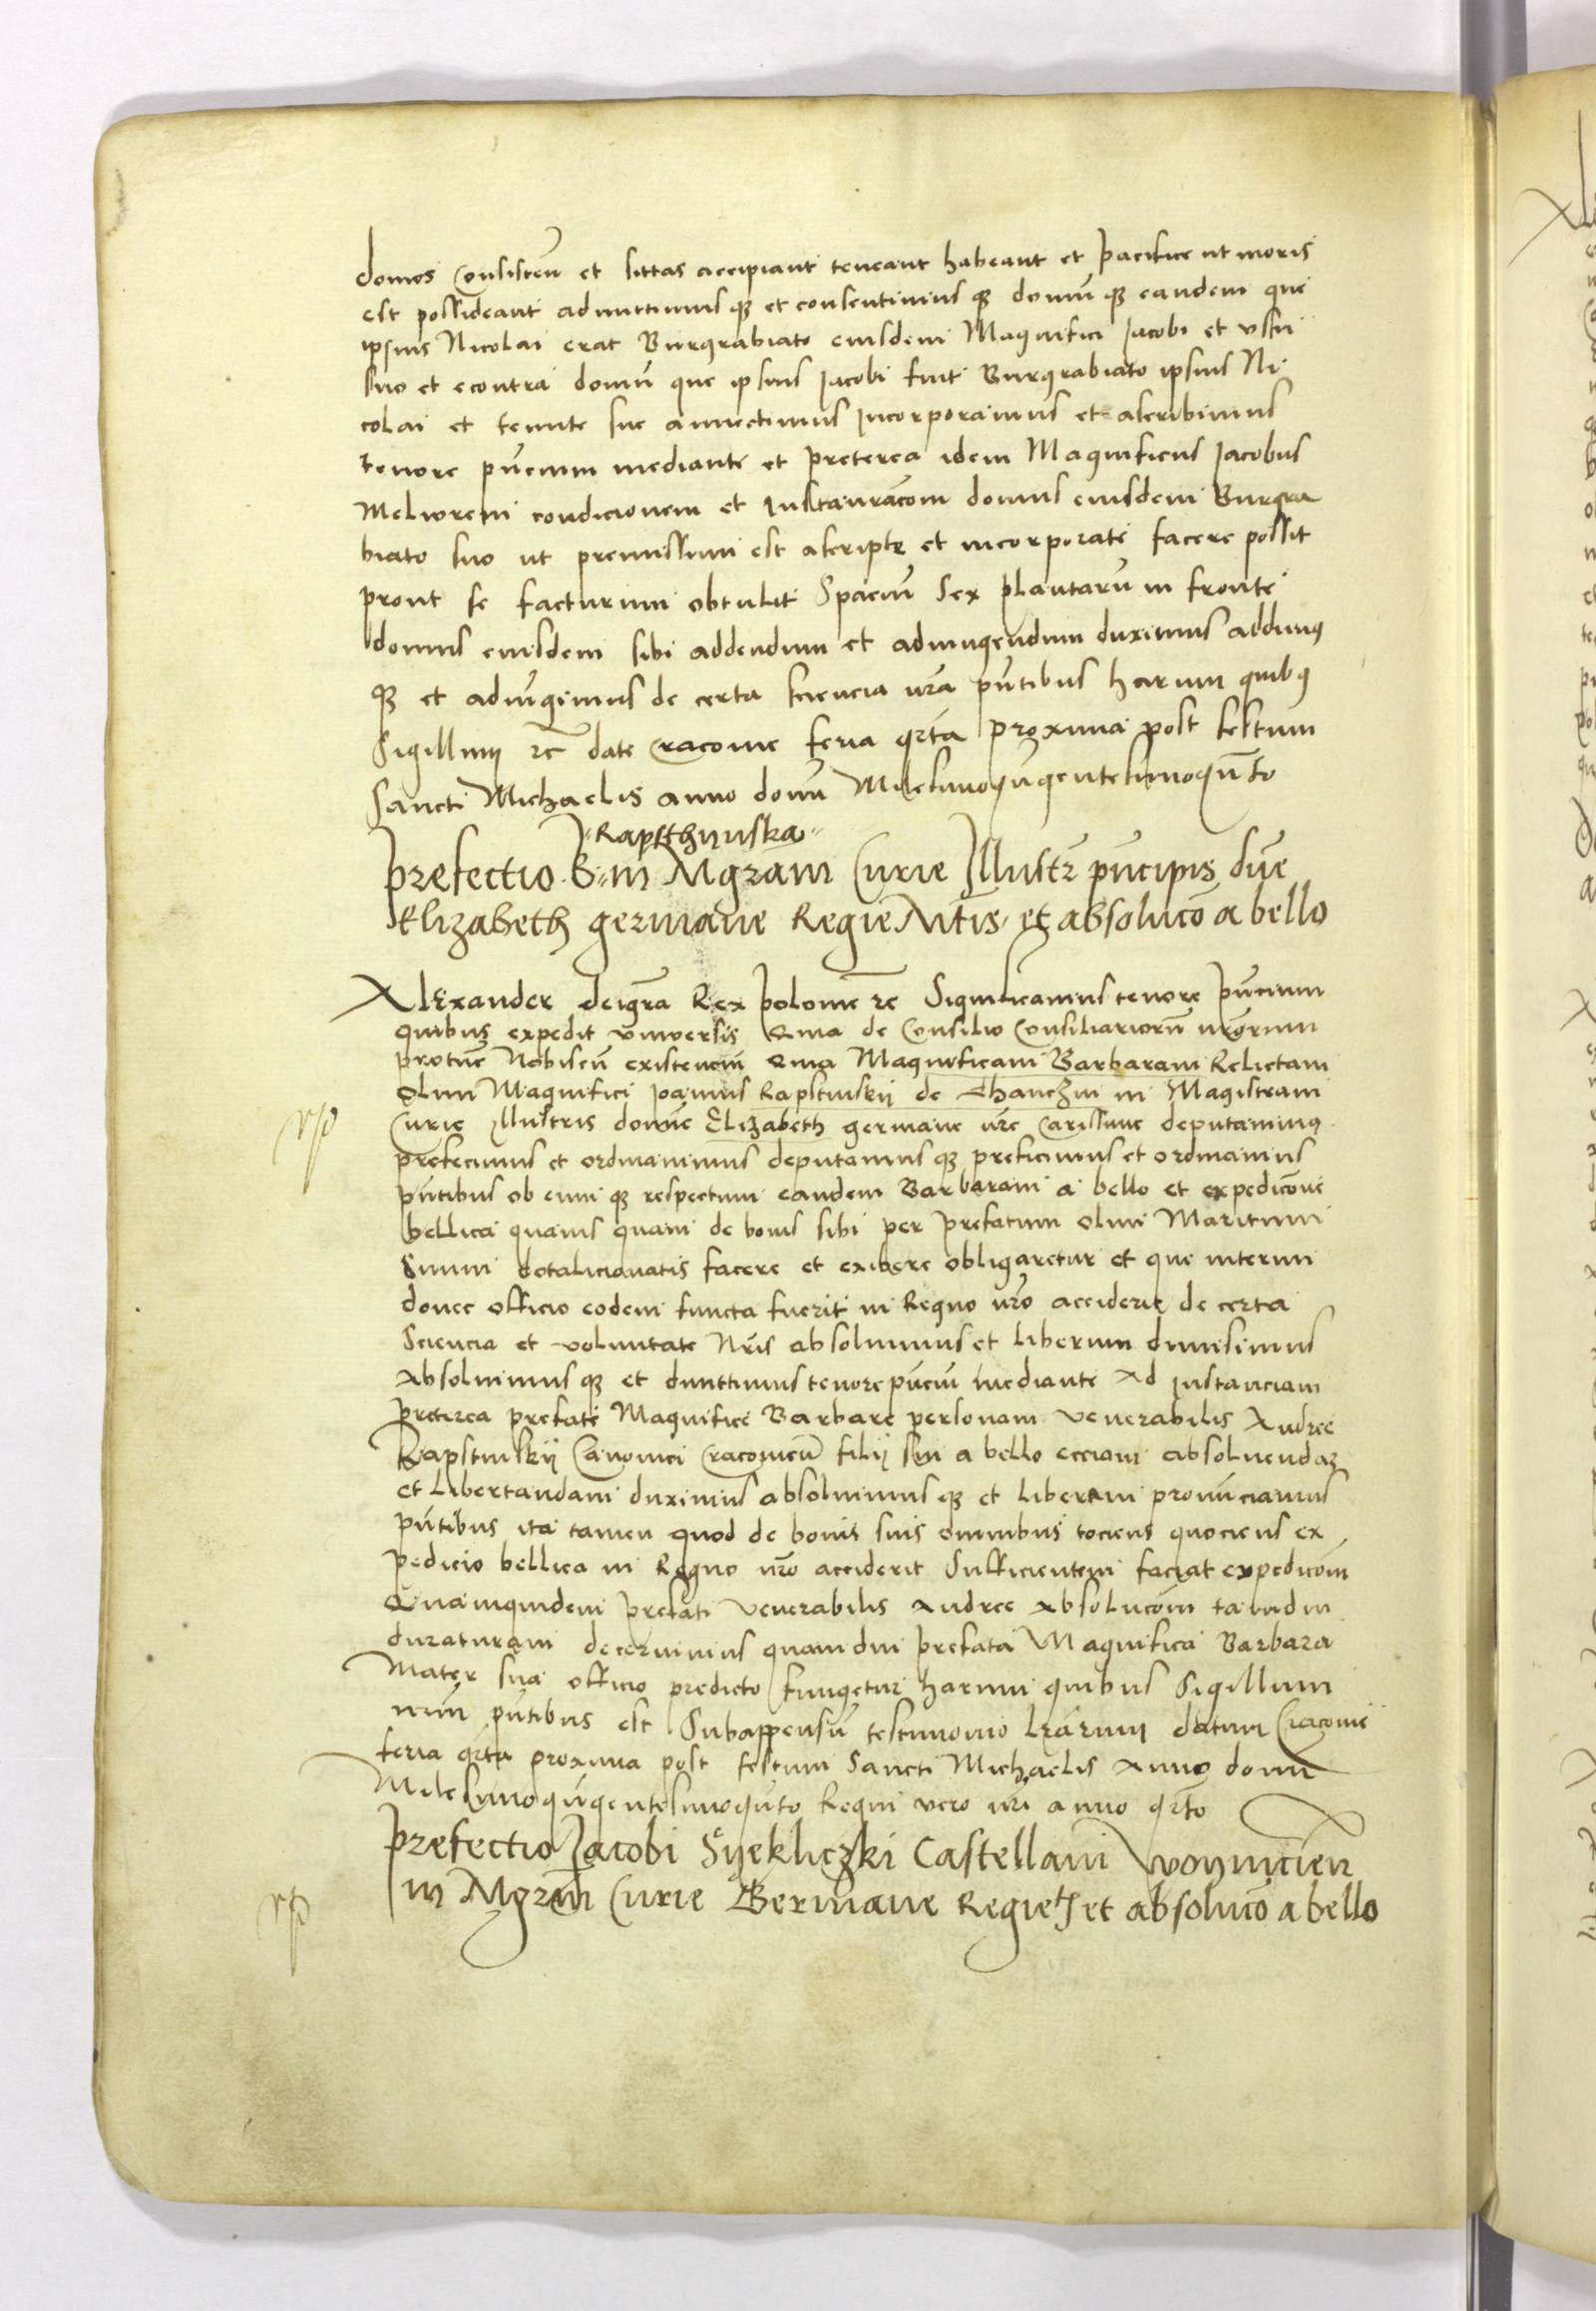 domos Consisten̄ et sittas accipiant teneant habeant et pacifice ut moris
est possideant admittimus q3 et consentimus q3 domū q3 eandem que
ipsius Nicolai erat Burgrabiato eiusdem Magnifici Jacobi et usui
suo et econtra domū que ipsius Jacobi fuit Burgrabiato ipsius Ni
colai et tenute sue annectimus Incorporamus et ascribimus
tenore pn̄cium mediante et preterea idem Magnificus Jacobus
Meliorem condicionem et Instauracōm domus eiusdem Burgra
biato suo ut premissum est ascripte et incorporate facere possit
prout se facturum obtulit Spaciū Sex plantarū in fronte
domus eiusdem sibi addendum et adiungendum duximus addimus
q3 et adiūgimus de certa sciencia nr̄a pn̄tibus harum quibus
Sigillum rc̄ date Cracovie feria qrta proxima post festum
Sancti Michaelis anno domī Milesimoqūgentesimoqūto
Rapsthynska
prefectio B in Mgram Curie Illustr pn̄cipis dn̄e
Elizabeth germane Regie Mtis et absolucō a bello
Alexander dei gr̄a Rex polonie rc̄ Significamus tenore pn̄cium
quibus expedit universis Quia de Consilio Consiliariorū nr̄orum
protūc Nobiscū existenciū Quia Magnificam Barbaram Relictam
Olim Magnifici Joannis Rapstinskij de Thanczin in Magistram
Curie Illustris domīe Elizabeth germane nr̄e Carissime deputavimus
prefecimus et ordinavimus deputamus q3 preficimus et ordinamus
pn̄tibus ob cuius q3 respectum eandem Barbaram a bello et expedicōne
bellica quamis quam de bonis sibi per prefatum olim Maritum
Suum dotalicionatis facere et exibere obligaretur et que interim
donec officio eodem functa fuerit in Regno nr̄o acciderit de certa
Sciencia et voluntate Nr̄is absolvimus et liberum dimisimus
Absolvimus q3 et dimittimus tenore pn̄ciū mediante Ad Instanciam
preterea prefate Magnifice Barbare personam venerabilis Andree
Rapstinskij Canonici Cracovien̄ filij sui a bello ecciam absolvendam
et libertandam duximus absolvimus q3 et liberam pronūciamus
pn̄tibus ita tamen quod de bonis suis omnibus tociens quociens ex
pedicio bellica in Regno nr̄o acciderit Sufficientem faciat expedicōm
Quamquidem prefati venerabilis Andree Absolucōm tamdiu
duraturam decernimus quamdiu prefata Magnifica Barbara
Mater sua officio predicto fungetur harum quibus Sigillum
nrm̄ pn̄tibus est Subappensū testimonio lr̄arum datum Cracovie
feria qrta proxima post festum Sancti Michaelis Anno domī
Milesimoqūgentesimoqūto Regni vero nr̄i anno qrto
prefectio Jacobi Syekliczki Castellani Woynicien̄
in Mgrm̄ Curie Germane Regie Mtis et absolucō a bello